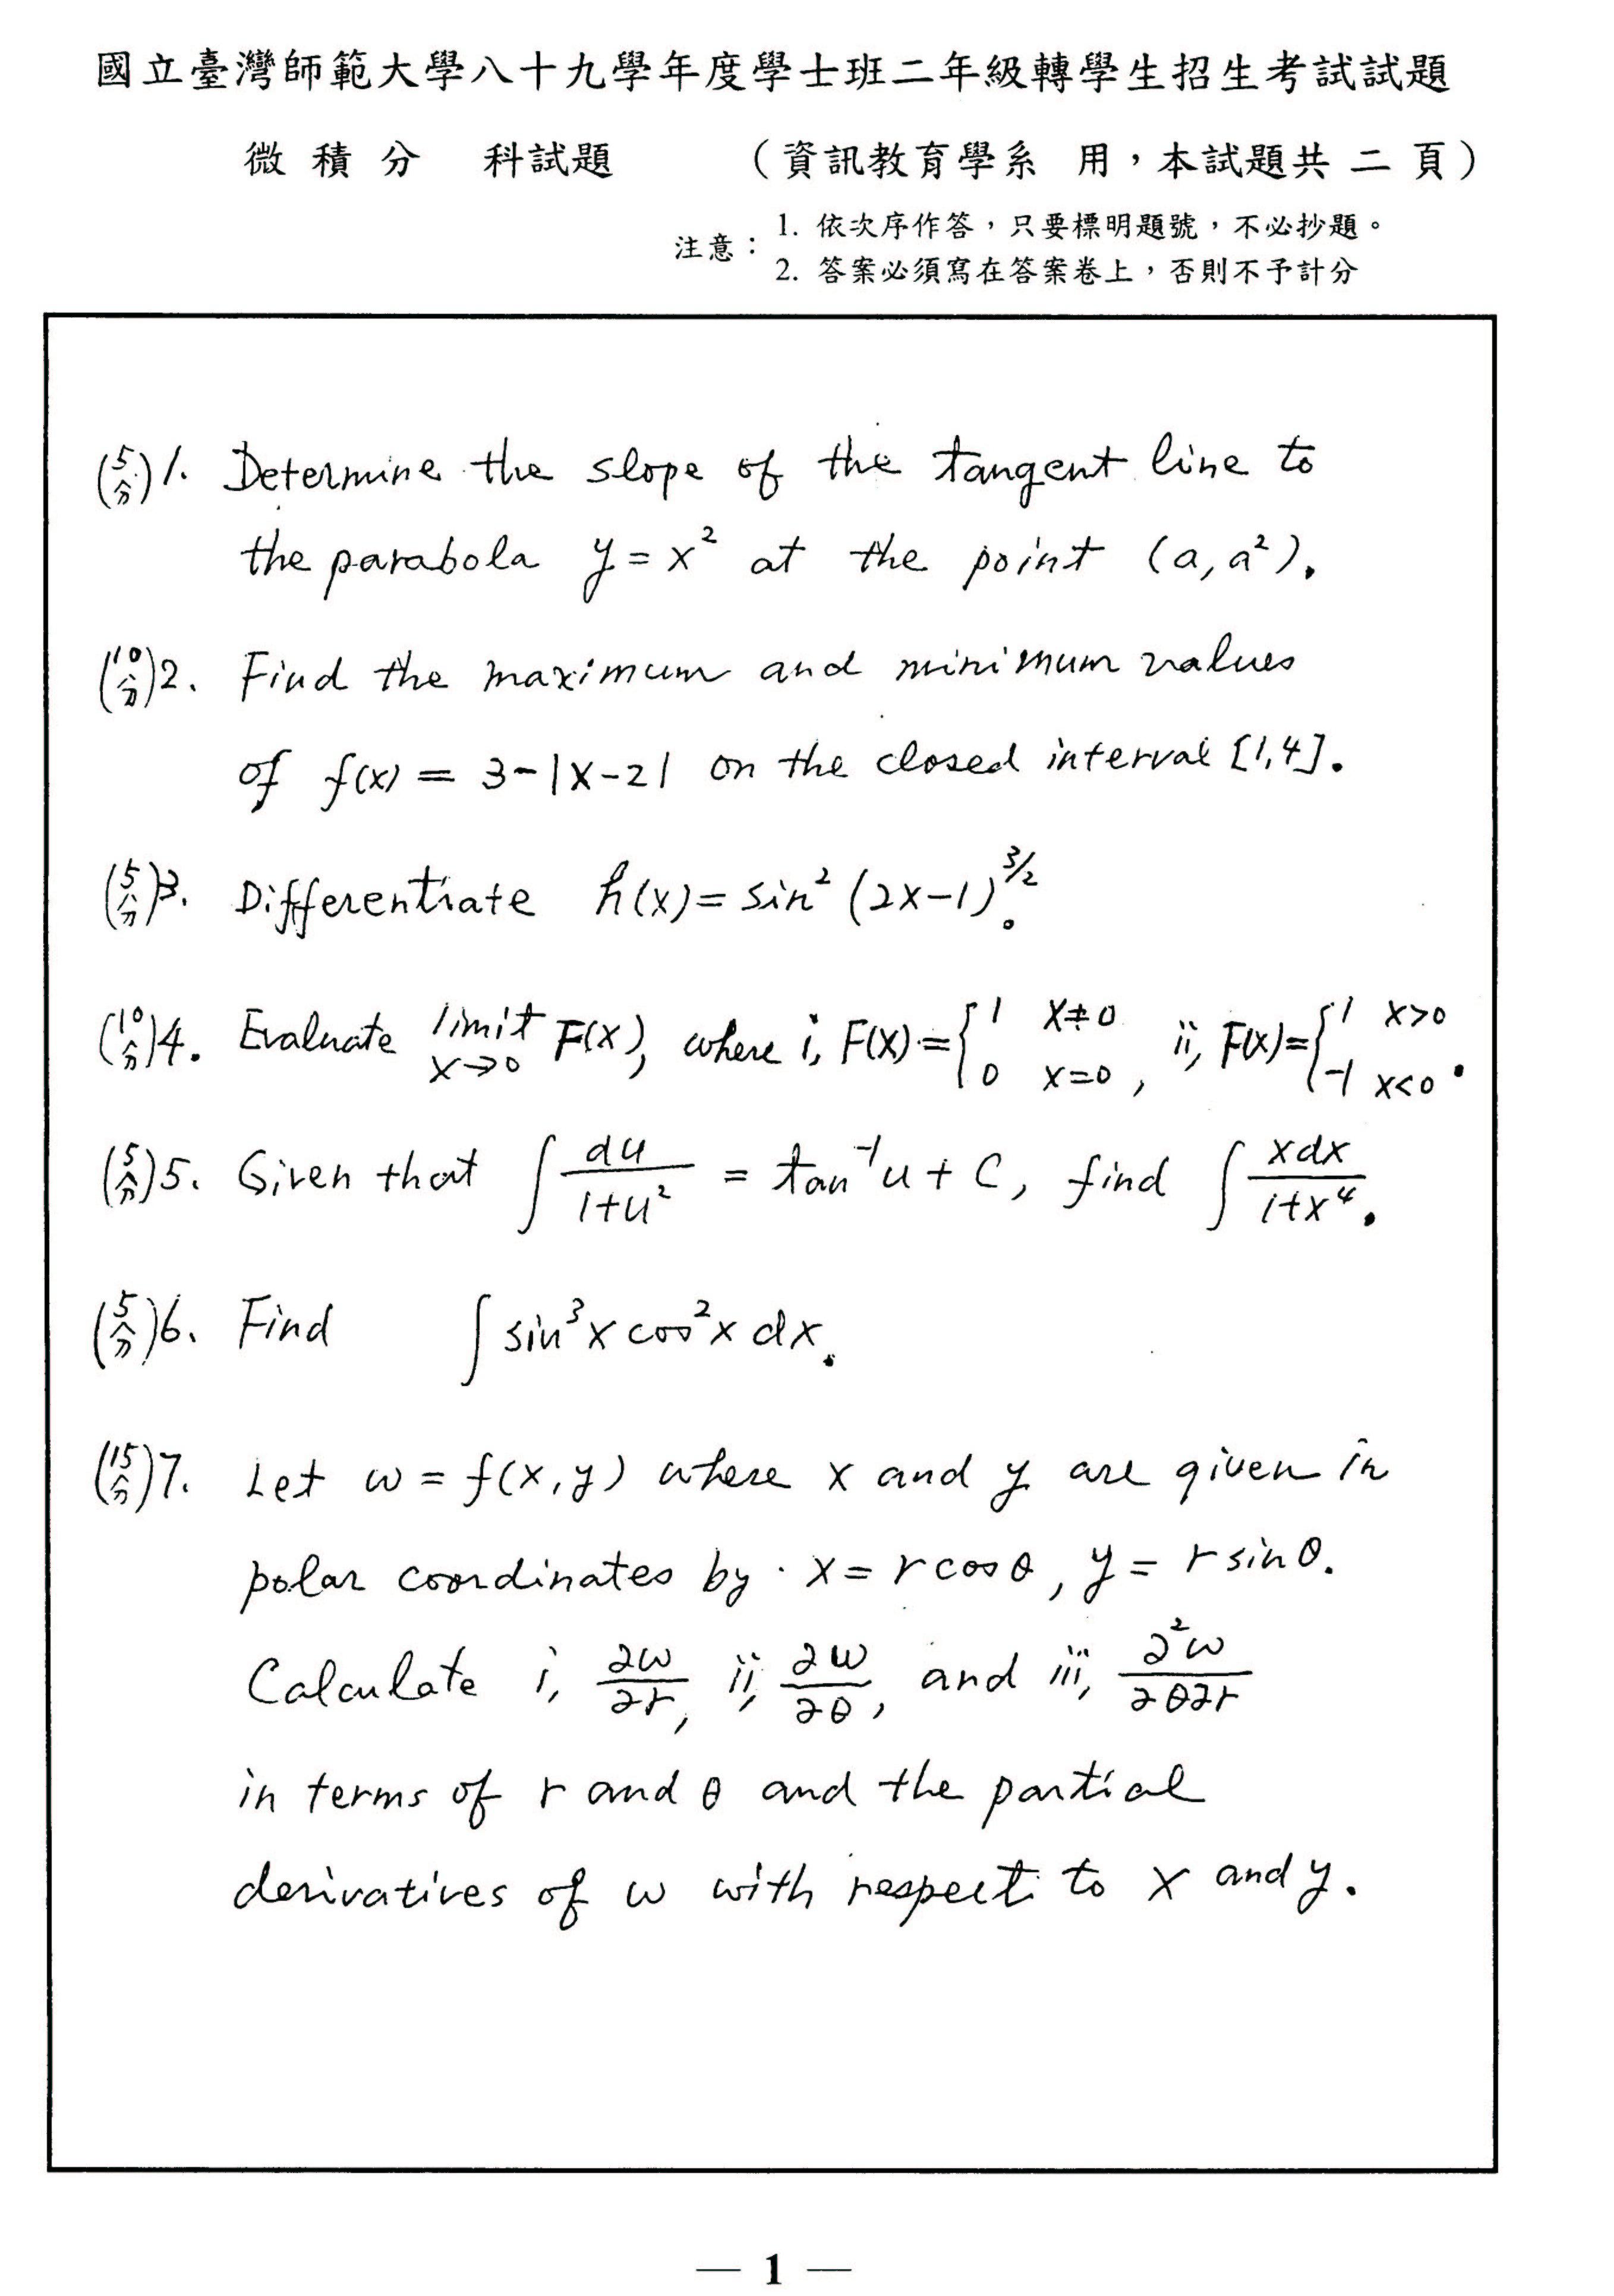 國立臺灣師範大學八十九學年度學士班二年級轉學生招生考試試題
微積分 科試題 (資訊教育學系 用，本試題共 二 頁)
注意：1. 依次序作答，只要標明題號，不必抄題。
2. 答案必須寫在答案卷上，否則不予計分
(5分)1. Determine the slope of the tangent line to
the parabola y = x² at the point (a, a²).
(10分)2. Find the maximum and minimum values
of f(x) = 3-|x-2| on the closed interval [1,4].
(5分)3. Differentiate h(x) = sin² (2x-1)^{3/2}.
(10分)4. Evaluate limit_{x→0} F(x), where i, F(x) = { 1 x≠0, 0 x=0 , ii, F(x) = { 1 x>0, -1 x<0 .
(5分)5. Given that ∫ du/(1+u²) = tan⁻¹u + C, find ∫ xdx/(1+x⁴).
(5分)6. Find ∫ sin³x cos²x dx.
(15分)7. Let w = f(x,y) where x and y are given in
polar coordinates by x = r cosθ, y = r sinθ.
Calculate i, ∂w/∂r, ii, ∂w/∂θ, and iii, ∂²w/∂θ∂r
in terms of r and θ and the partial
derivatives of w with respect to x and y.
— 1 —